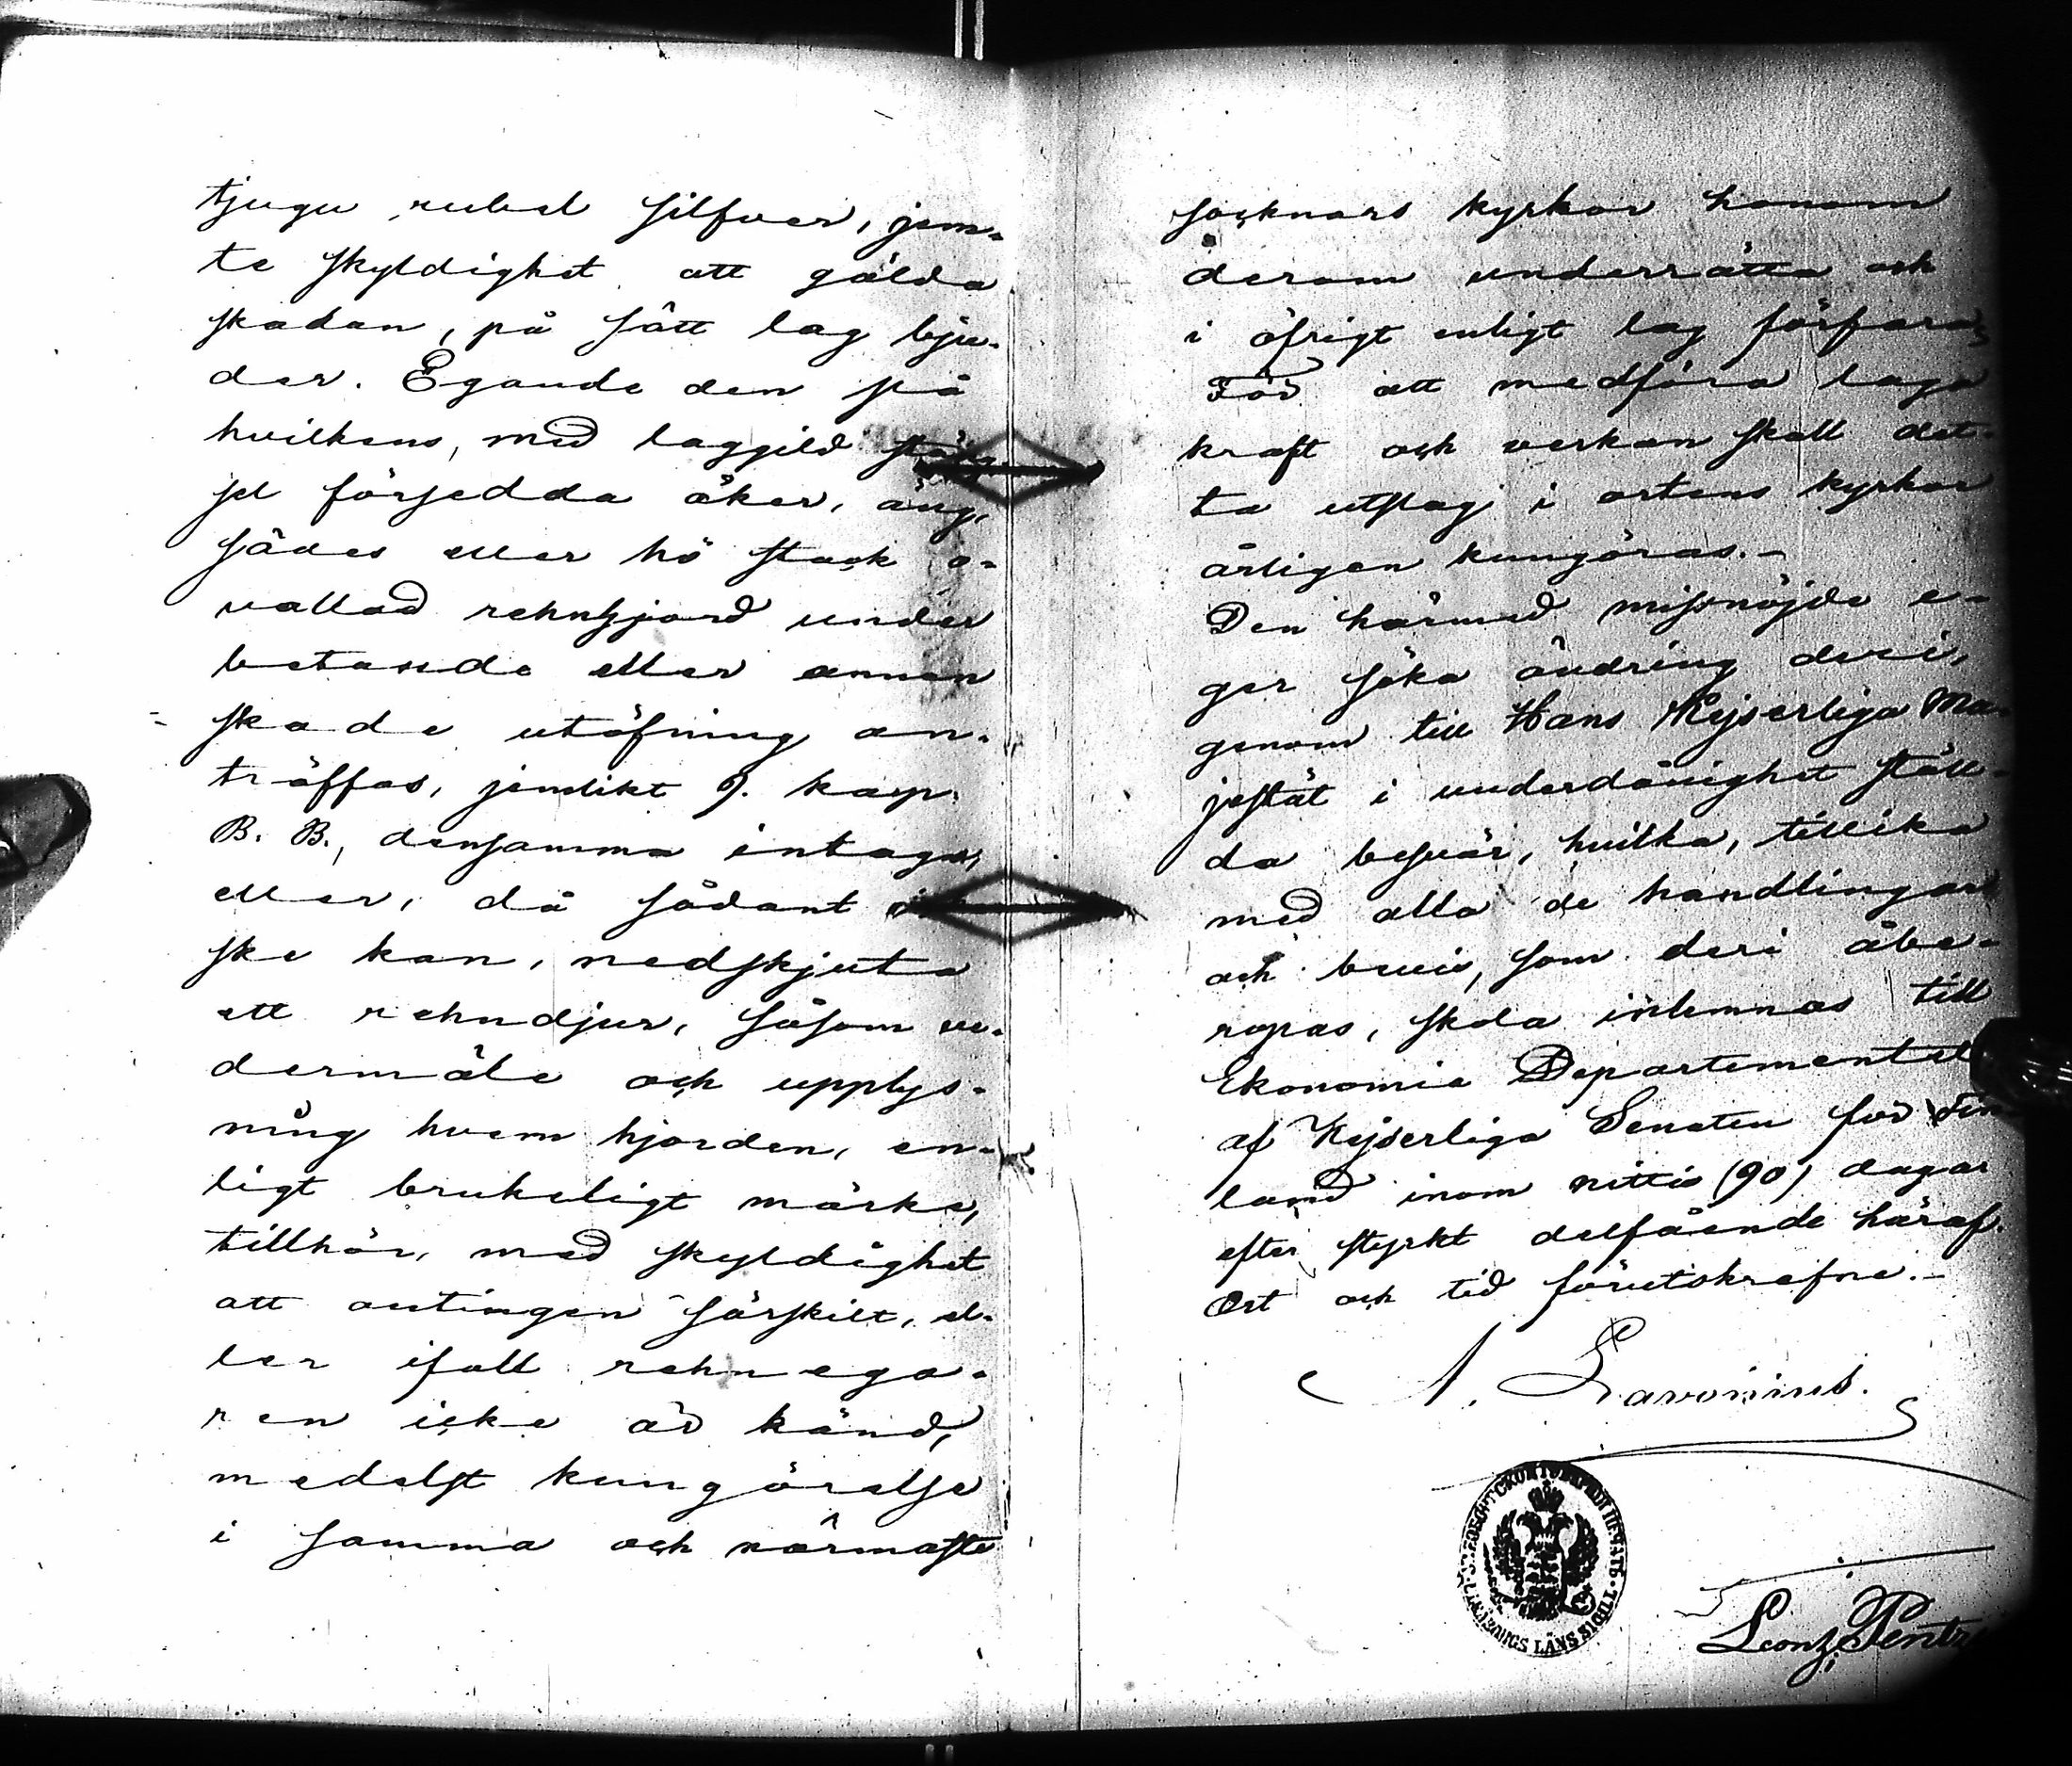 tjugu rubel silfver, jem-
te skyldighet att gälda
skadan, på sätt lag bju-
der. Egande den på
hvilkens, med laggild stäng-
sel försedda åker, äng,
sädes eller hö stack o-
vallad rehnhjord under
betande eller annan
skade utöfning an-
träffas, jemlikt 9. kap.
B. B., densamma intaga,
eller, då sådant ej
ske kan, nedskjuta
ett rehndjur, såsom ve-
dermäle och upplys-
ning hvem hjorden, en-
ligt brukeligt märke,
tillhör, med skyldighet
att antingen särskilt, el-
ler ifall rehnega-
ren icke är känd,
medelst kungörelse
i samma och närmaste
socknars kyrkor honom
derom underrätta och
i öfrigt enligt lag förfara;
För att medföra laga
kraft och verkan skall det-
ta utslag i ortens kyrkor
årligen kungöras.-
Den härmed missnöjde e-
ger söka ändring deri,
genom till Hans Kejserliga Ma-
jestät i underdånighet ställ-
da besvär, hvilka, tillika
med alla de handlingar
och bevis, som deri åbe-
ropas, skola inlemnas till
Ekonomie Departementet
af Kejserliga Senaten för Fin-
land inom nittio (90) dagar
efter styrkt delfående häraf.
Ort och tid förutskrefne.-
A. Lavonius.
LÄNS SIGILL